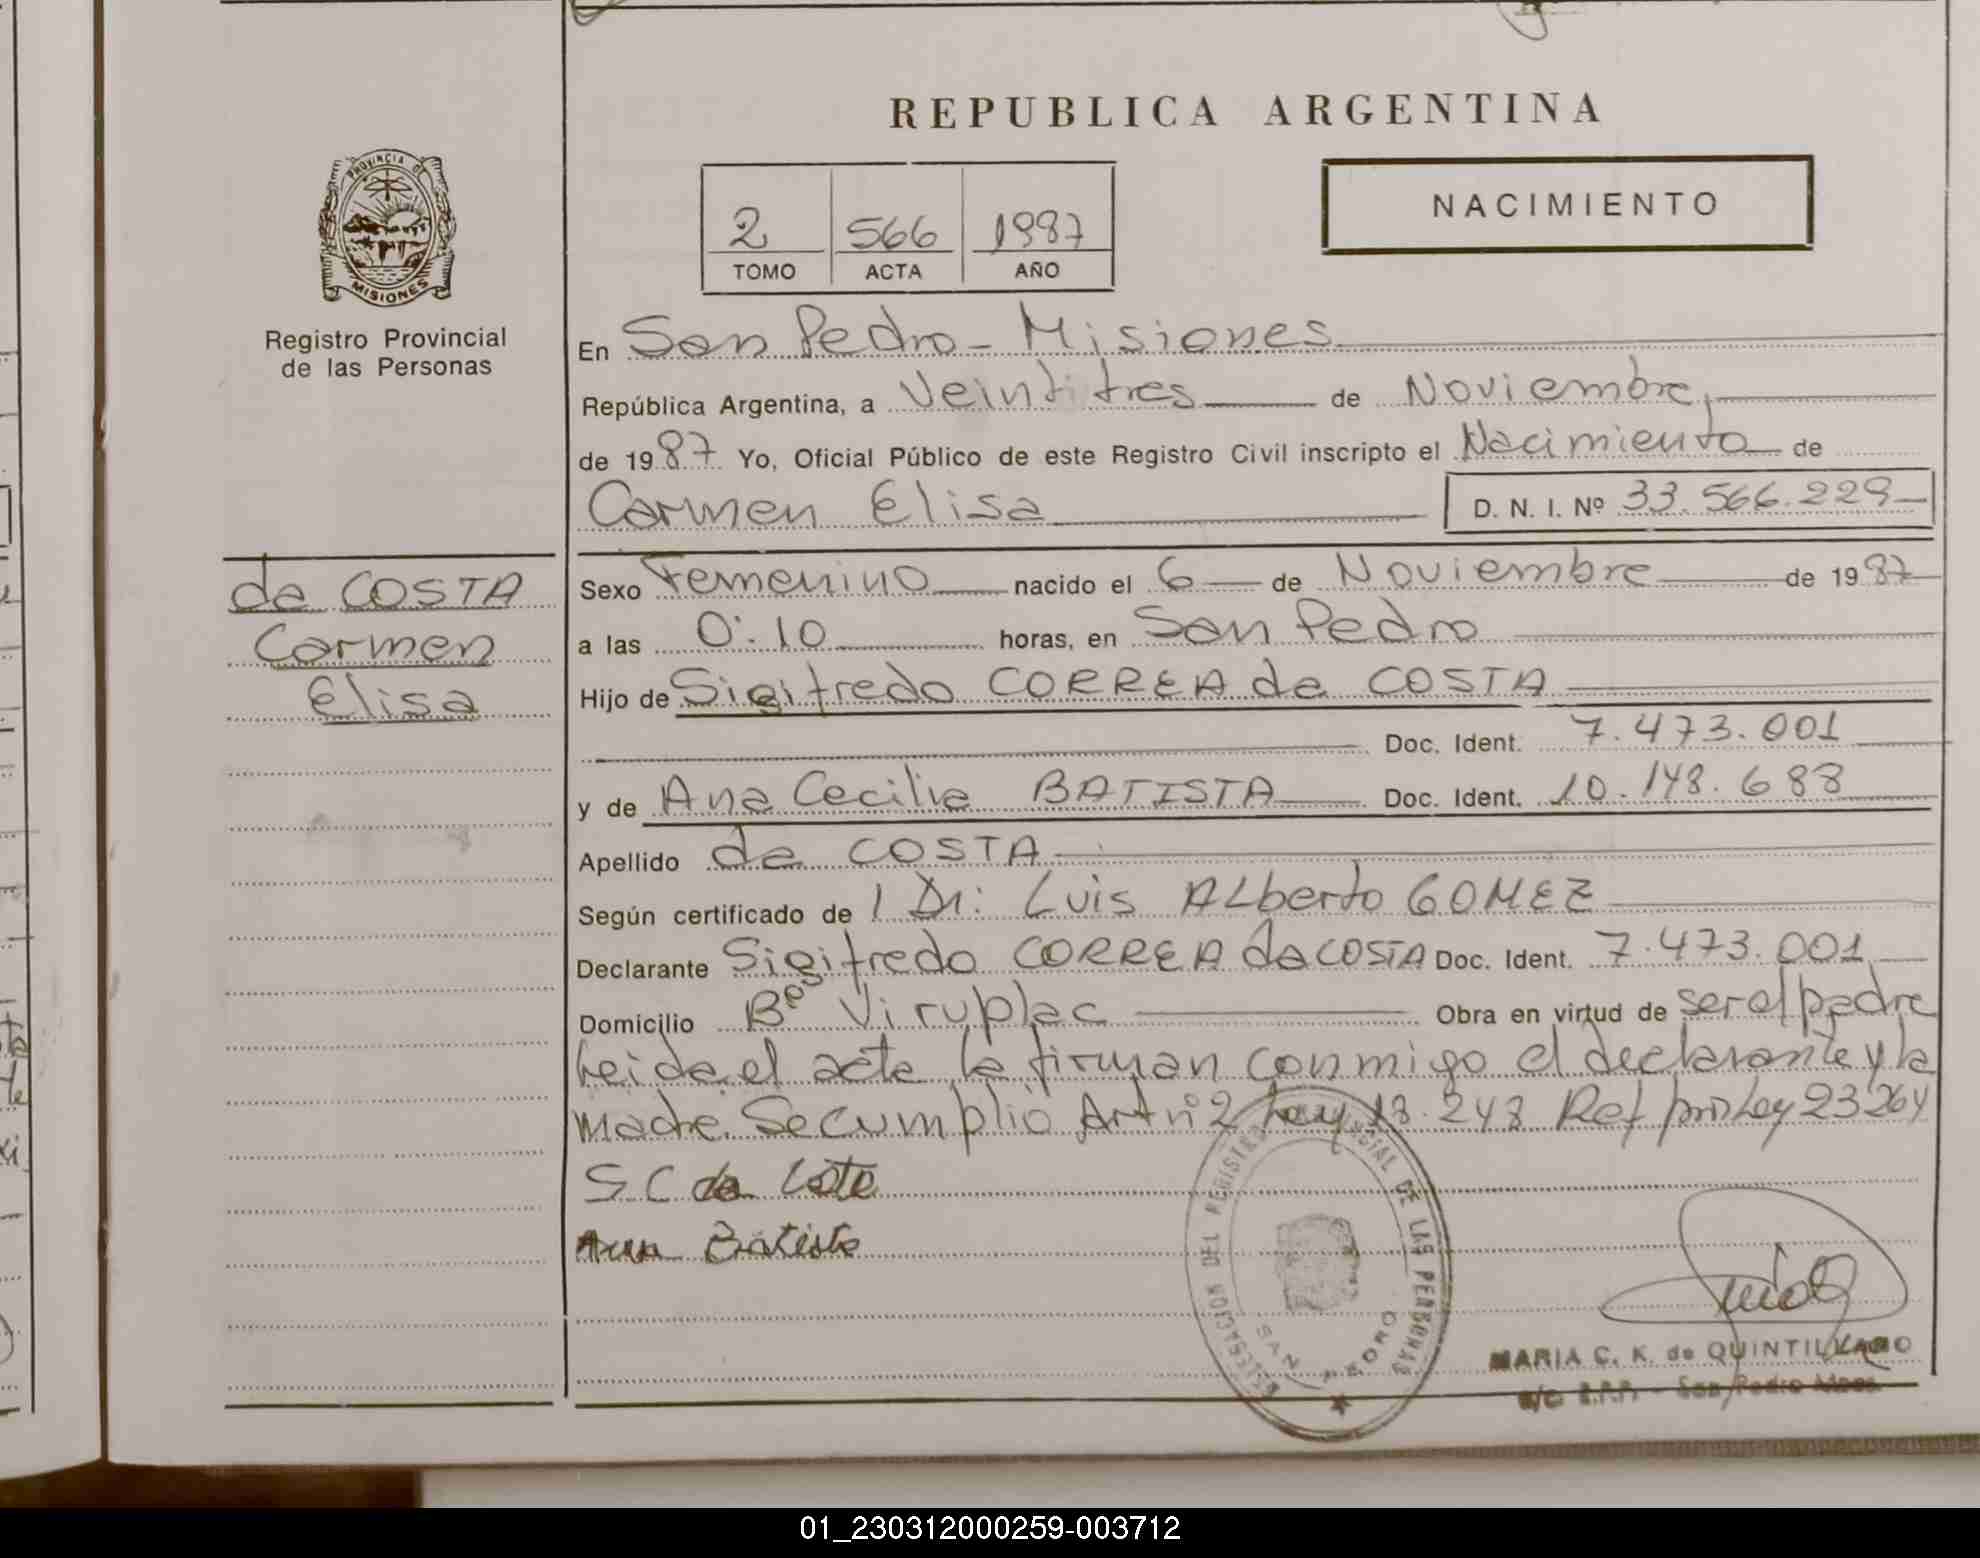 REPUBLICA ARGENTINA
NACIMIENTO
2 566 1987
TOMO ACTA AÑO
PROVINCIA DE
MISIONES
Registro Provincial
de las Personas
En San Pedro - Misiones
República Argentina, a Veintitres de Noviembre,
de 1987 Yo, Oficial Público de este Registro Civil inscripto el Nacimiento de
Carmen Elisa D. N. I. Nº 33.566.229
da COSTA
Carmen
Elisa
Sexo Femenino nacido el 6 de Noviembre de 1987
a las 0:10 horas, en San Pedro
Hijo de Sigifredo CORREA da COSTA
Doc. Ident. 7.473.001
y de Ana Cecilia BATISTA Doc. Ident. 10.148.688
Apellido da COSTA
Según certificado de l Dr: Luis ALberto GOMEZ
Declarante Sigifredo CORREA da COSTA Doc. Ident. 7.473.001
Domicilio Bº Viruplac Obra en virtud de ser el padre
Leida el acta la firman conmigo el declarante y la
madre. Se cumplió Art nº 2 Ley 18.248 Ref por Ley 23264
S C da Costa
Ana Batista
DELEGACION DEL REGISTRO PROVINCIAL DE LAS PERSONAS
SAN PEDRO
MARIA C. K. de QUINTILLANO
a/c R.P.P. - San Pedro Mnes.
01_230312000259-003712